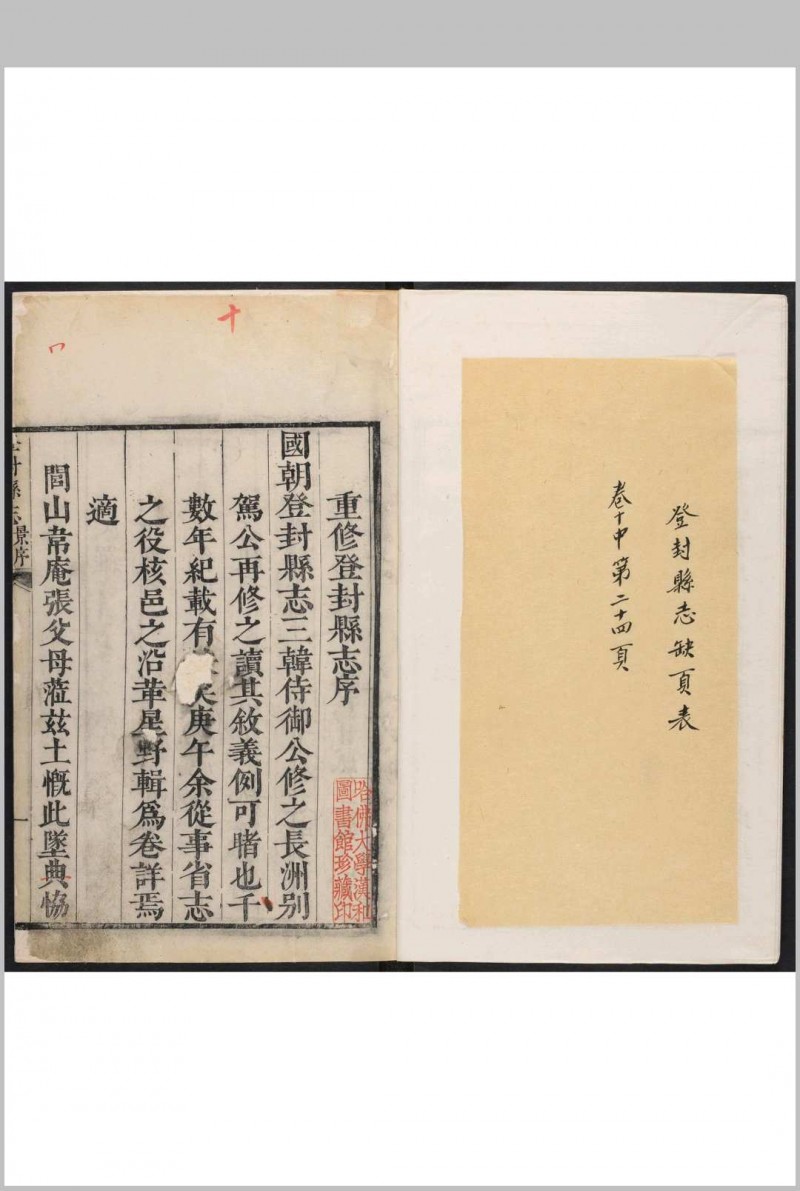 登封縣志缺頁表
卷十中第二十四頁
十
重修登封縣志序
國朝登封縣志三韓侍御公修之長洲別
駕公再修之讀其敘義例可睹也千
數年紀載有矣庚午余從事省志
之役核邑之沿革星野輯爲卷詳焉
適
閭山岕庵張父母蒞玆土慨此墜典恊
縣志
景序
哈佛大學漢和
圖書館珍藏印